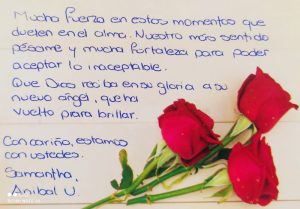 Mucha fuerza en estos momentos que
duelen en el alma. Nuestro más sentido
pésame y mucha fortaleza para poder
aceptar lo inaceptable.
Que Dios reciba en su gloria a su
nuevo ángel, que ha
vuelto para brillar.
Con cariño, estamos
con ustedes.
Samantha,
Anibal U.